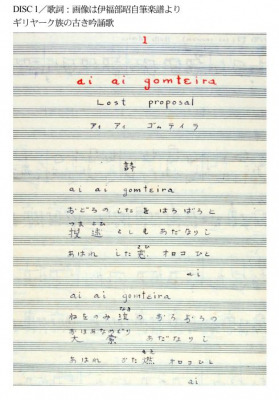 DISC 1／歌詞：画像は伊福部昭自筆楽譜より
ギリヤーク族の古き吟誦歌
1
ai ai gomteira
Lost proposal
アイ アイ ゴムテイラ
詩
ai ai gomteira
おどろのしたをはろばろと
つま とむ
あだなりし
あはれ した恋 オロコ ひと
ai
ai ai gomteira
ねをのみ なき の おろおろの
おほみなめぐり
大 あだなりし
あはれ がた燃 オロコ ひと
ai